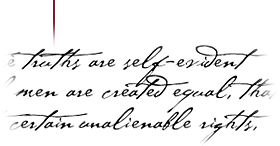 e truths are self-evident
l men are created equal, tha
certain unalienable rights,